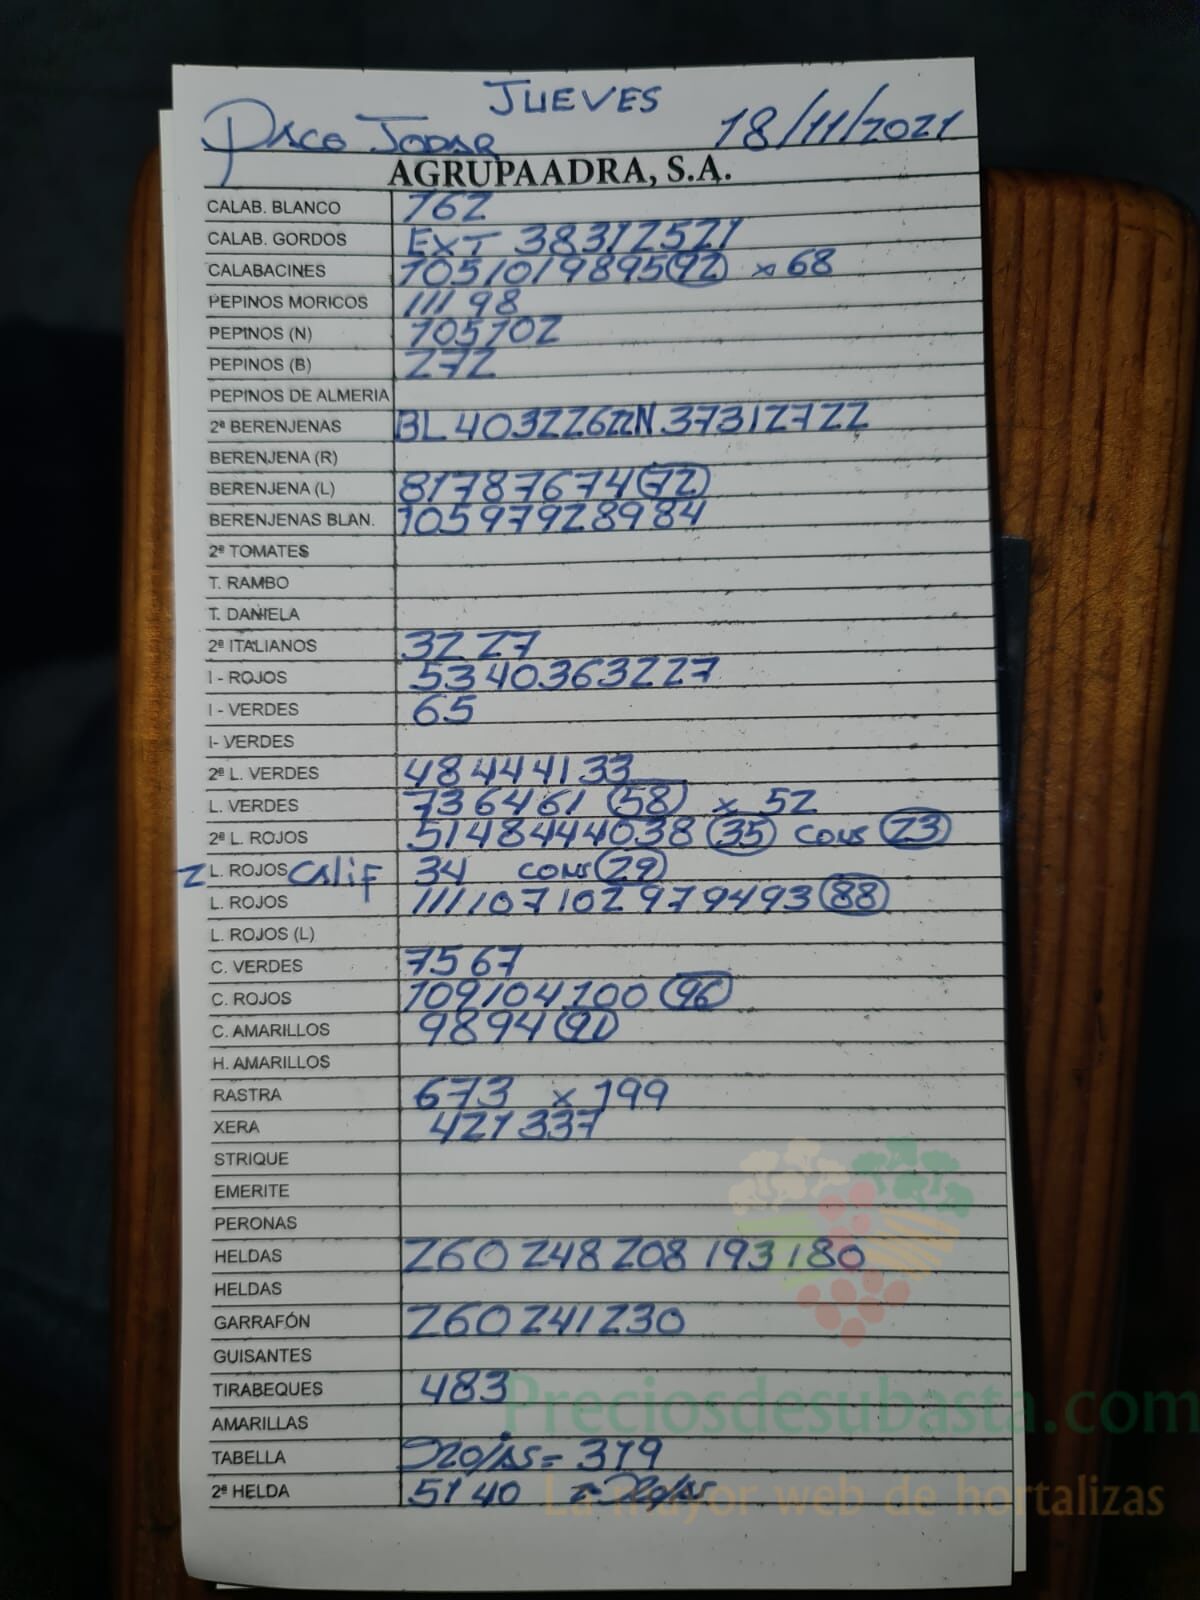 JUEVES
PACO JODAR 18/11/2021
AGRUPAADRA, S.A.
CALAB. BLANCO 162
CALAB. GORDOS EXT 38312521
CALABACINES 1051019895 92 x 68
PEPINOS MORICOS 111 98
PEPINOS (N) 105102
PEPINOS (B) 272
PEPINOS DE ALMERIA
2ª BERENJENAS BL 40322622N 37312722
BERENJENA (R)
BERENJENA (L) 81787674 72
BERENJENAS BLAN. 10597928984
2ª TOMATES
T. RAMBO
T. DANIELA
2ª ITALIANOS 32 27
I - ROJOS 5340363227
I - VERDES 65
I- VERDES
2ª L. VERDES 48444133
L. VERDES 736461 58 x 52
2ª L. ROJOS 5148444038 35 CONS 23
2 L. ROJOS CALIF 34 CONS 29
L. ROJOS 111107102979493 88
L. ROJOS (L)
C. VERDES 75 67
C. ROJOS 109104100 96
C. AMARILLOS 9894 91
H. AMARILLOS
RASTRA 673 x 199
XERA 421 337
STRIQUE
EMERITE
PERONAS
HELDAS 260 248 208 193 180
HELDAS
GARRAFÓN 260 241 230
GUISANTES
TIRABEQUES 483
Preciosdesubasta.com
AMARILLAS
TABELLA = 319
2ª HELDA 51 40
La mayor web de hortalizas